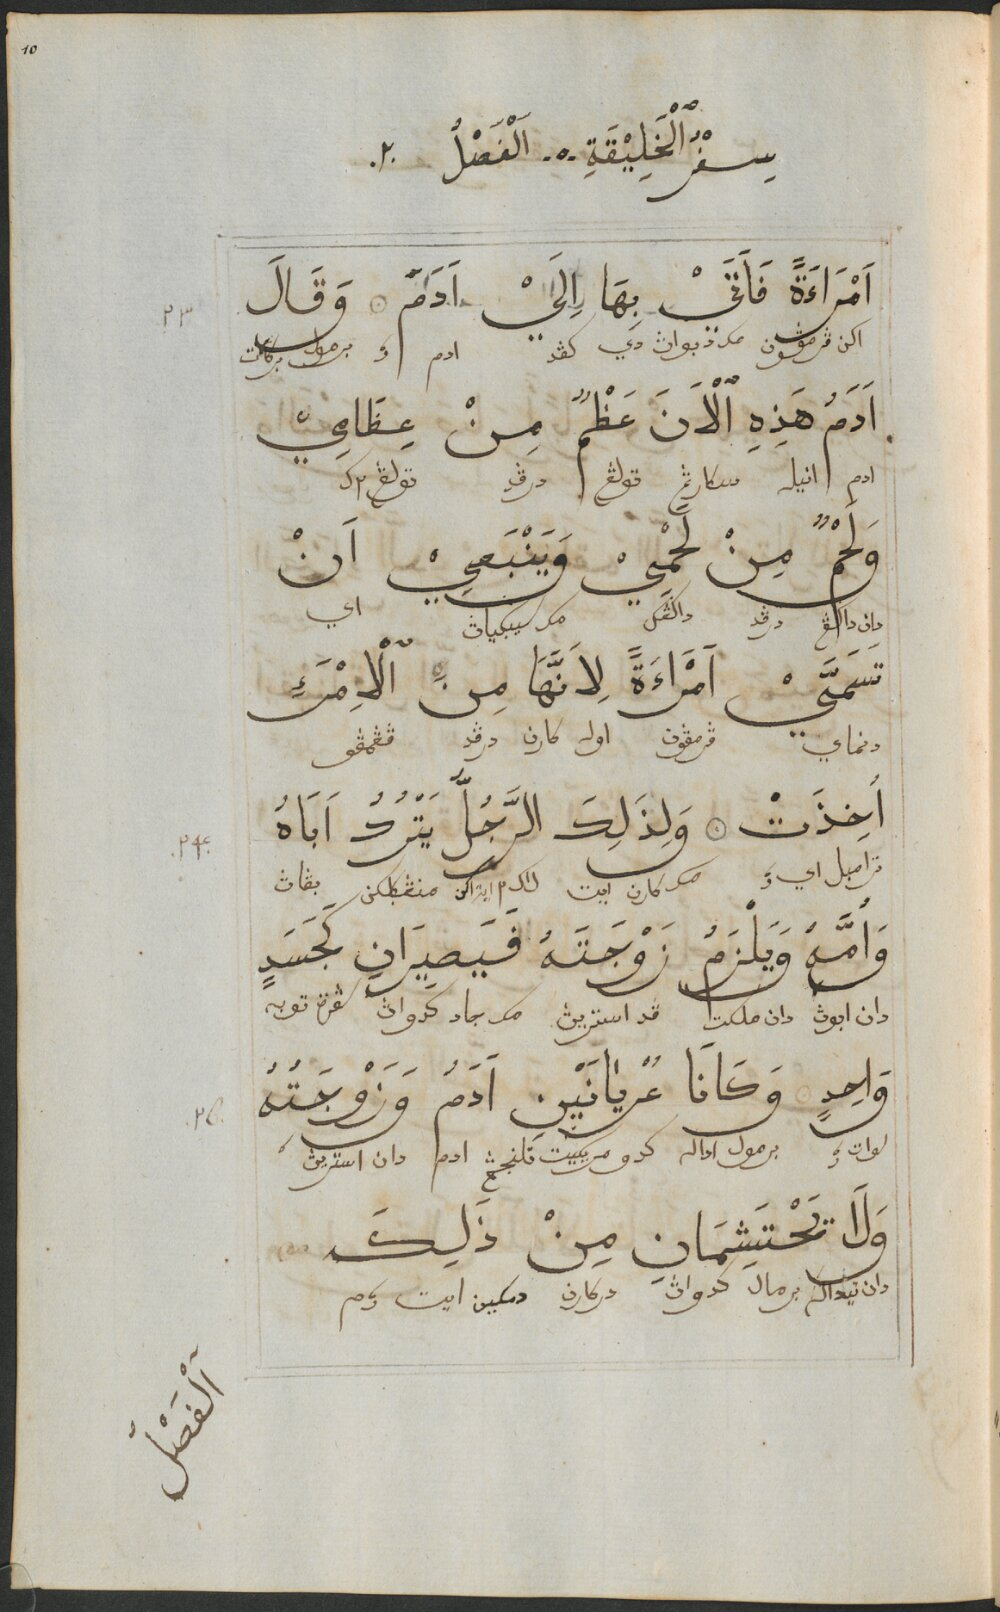 10
سِفْرُ ٱلْخَلِيْقَةِ ٠٠٠ اَلْفَصْلُ ٢.
اَمْرَاَءَةً فَاَتَيْ بِهَا اِلَيْ اَدَمَ ۞ وَقَالَ
٢٣
اكن ڤرمڤون مك دبواث دي كڤد ادم ک برمول بركات
اَدَمُ هَذِهِ ٱلْاَنَ عَظْمٌ مِنْ عِظَامِيْ
ادم انيله سكارڠ تولڠ درڤد تولڠ٢ک
وَلَحْمٌ مِنْ لَحْمِيْ وَيَنْبَغِيْ اَنْ
دان داڬڠ درڤد داڬڠک مك اي
تَسَمَّيْ اَمْرَاءَةً لِاَنَّهَا مِنَ ٱلْاِمْرَءِ
دنماي ڤرمڤون اوله كارن درڤد
اُخِذَتْ ۞ وَلِذَلِكَ الرَّجُلُ يَتْرُكُ اَبَاهُ
٢٤.
ترامبل اي ک مك كارن ايت لاک٢ ايتاكن منڠݢلكن بڤاث
وَاُمَّهُ وَيَلْزَمُ زَوْجَتَهُ فَيَصِيرَانِ كَجَسَدٍ
دان ابوث دان ملكت ڤد استريث مك جاد كدواث توبه
وَاحِدٍ ۞ وَكَانَا عُرْيَانَيْنِ اَدَمُ وَزَوْجَتُهُ
٢٥.
سوات ک برمول اداله كدو تلنجڠ ادم دان استريث
وَلَا تَحْتَشِمَانِ مِنْ ذَلِكَ
دان تيداله برمال كدواث دركارن دمكين ايت
اَلْفَصْلُ